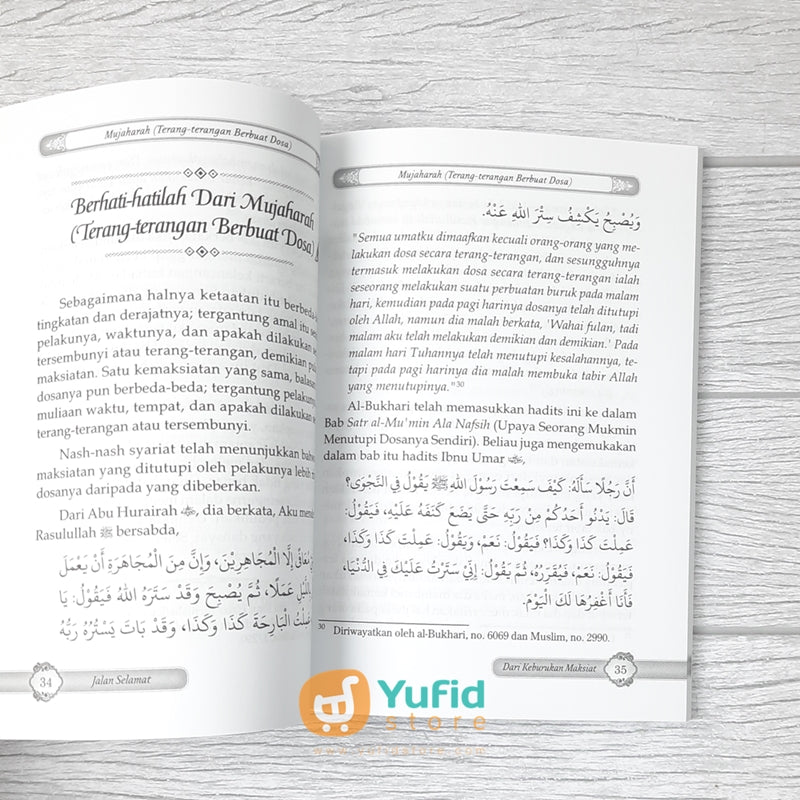 Mujaharah (Terang-terangan Berbuat Dosa)
Berhati-hatilah Dari Mujaharah
(Terang-terangan Berbuat Dosa)
Sebagaimana halnya ketaatan itu berbeda-
tingkatan dan derajatnya; tergantung amal itu
pelakunya, waktunya, dan apakah dilakukan
tersembunyi atau terang-terangan, demikian
maksiatan. Satu kemaksiatan yang sama,
dosanya pun berbeda-beda; tergantung
muliaan waktu, tempat, dan apakah dilakukan
terang-terangan atau tersembunyi.
Nash-nash syariat telah menunjukkan
maksiatan yang ditutupi oleh pelakunya lebih
dosanya daripada yang dibeberkan.
Dari Abu Hurairah ؓ, dia berkata, Aku
Rasulullah ﷺ bersabda,
إِلَّا الْمُجَاهِرِيْنَ، وَإِنَّ مِنَ الْمُجَاهَرَةِ أَنْ يَعْمَلَ
عَمَلًا، ثُمَّ يُصْبِحَ وَقَدْ سَتَرَهُ اللهُ فَيَقُوْلَ: يَا
الْبَارِحَةَ كَذَا وَكَذَا، وَقَدْ بَاتَ يَسْتُرُهُ رَبُّهُ
34
Jalan Selamat
Mujaharah (Terang-terangan Berbuat Dosa)
وَيُصْبِحُ يَكْشِفُ سِتْرَ اللهِ عَنْهُ.
"Semua umatku dimaafkan kecuali orang-orang yang me-
lakukan dosa secara terang-terangan, dan sesungguhnya
termasuk melakukan dosa secara terang-terangan ialah
seseorang melakukan suatu perbuatan buruk pada malam
hari, kemudian pada pagi harinya dosanya telah ditutupi
oleh Allah, namun dia malah berkata, 'Wahai fulan, tadi
malam aku telah melakukan demikian dan demikian.' Pada
malam hari Tuhannya telah menutupi kesalahannya, te-
tapi pada pagi harinya dia malah membuka tabir Allah
yang menutupinya."30
Al-Bukhari telah memasukkan hadits ini ke dalam
Bab Satr al-Mu'min Ala Nafsih (Upaya Seorang Mukmin
Menutupi Dosanya Sendiri). Beliau juga mengemukakan
dalam bab itu hadits Ibnu Umar ؓ,
أَنَّ رَجُلًا سَأَلَهُ: كَيْفَ سَمِعْتَ رَسُوْلَ اللهِ ﷺ يَقُوْلُ فِي النَّجْوَى؟
قَالَ: يَدْنُو أَحَدُكُمْ مِنْ رَبِّهِ حَتَّى يَضَعَ كَنَفَهُ عَلَيْهِ، فَيَقُوْلُ:
عَمِلْتَ كَذَا وَكَذَا؟ فَيَقُوْلُ: نَعَمْ، وَيَقُوْلُ: عَمِلْتَ كَذَا وَكَذَا،
فَيَقُوْلُ: نَعَمْ، فَيُقَرِّرُهُ، ثُمَّ يَقُوْلُ: إِنِّيْ سَتَرْتُ عَلَيْكَ فِي الدُّنْيَا،
فَأَنَا أَغْفِرُهَا لَكَ الْيَوْمَ.
30 Diriwayatkan oleh al-Bukhari, no. 6069 dan Muslim, no. 2990.
Dari Keburukan Maksiat
35
Yufid
store